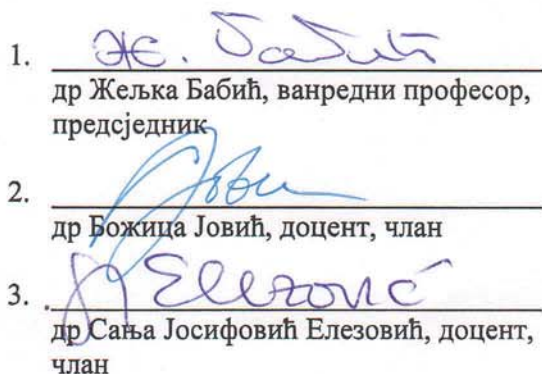 1. Ж. Бабић
др Жељка Бабић, ванредни професор,
предсједник
2. Јови
др Божица Јовић, доцент, члан
3. Elezović
др Сања Јосифовић Елезовић, доцент,
члан